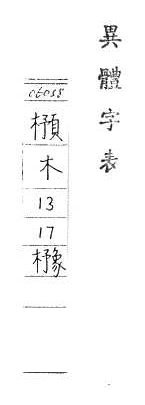 異體字表
06038
木
13
17
櫲